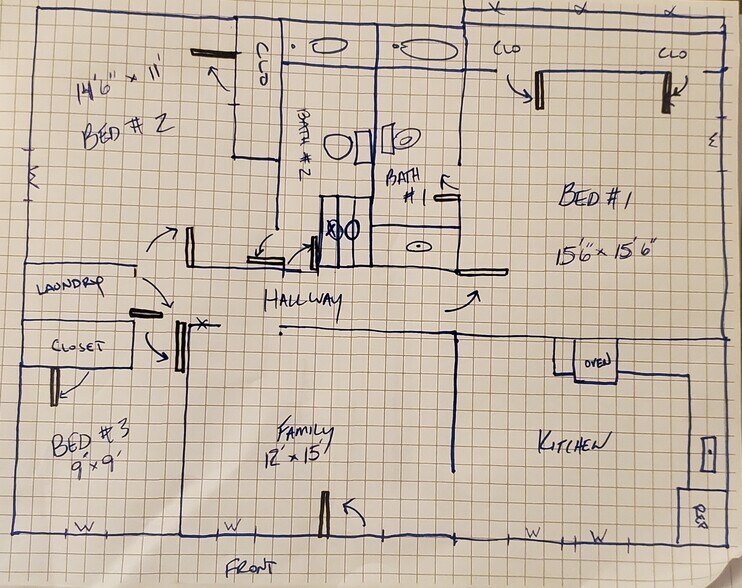 CLO
CLO
CLO
14'6" x 11'
BED # 2
BATH #2
BATH
#1
BED #1
15'6" x 15'6"
W
W
LAUNDRY
HALLWAY
CLOSET
OVEN
BED #3
9' x 9'
FAMILY
12' x 15'
KITCHEN
REF
W
W
W
W
FRONT